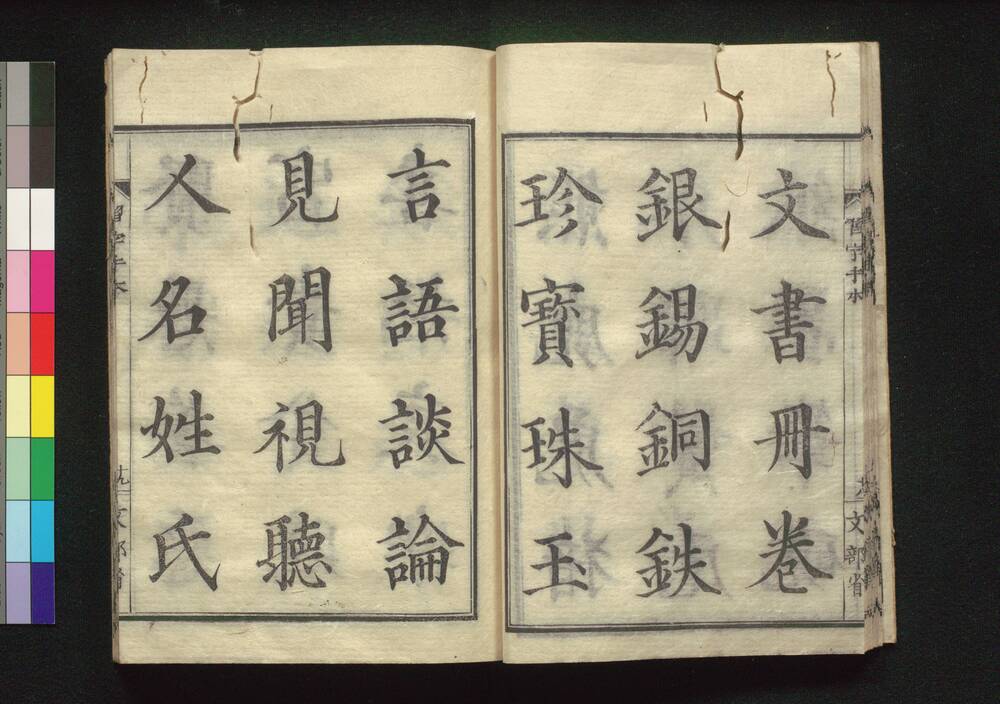 習字手本
文部省
文書冊巻
銀錫銅鉄
珍寳珠玉
言語談論
見聞視聽
人名姓氏
習字手本
文部省